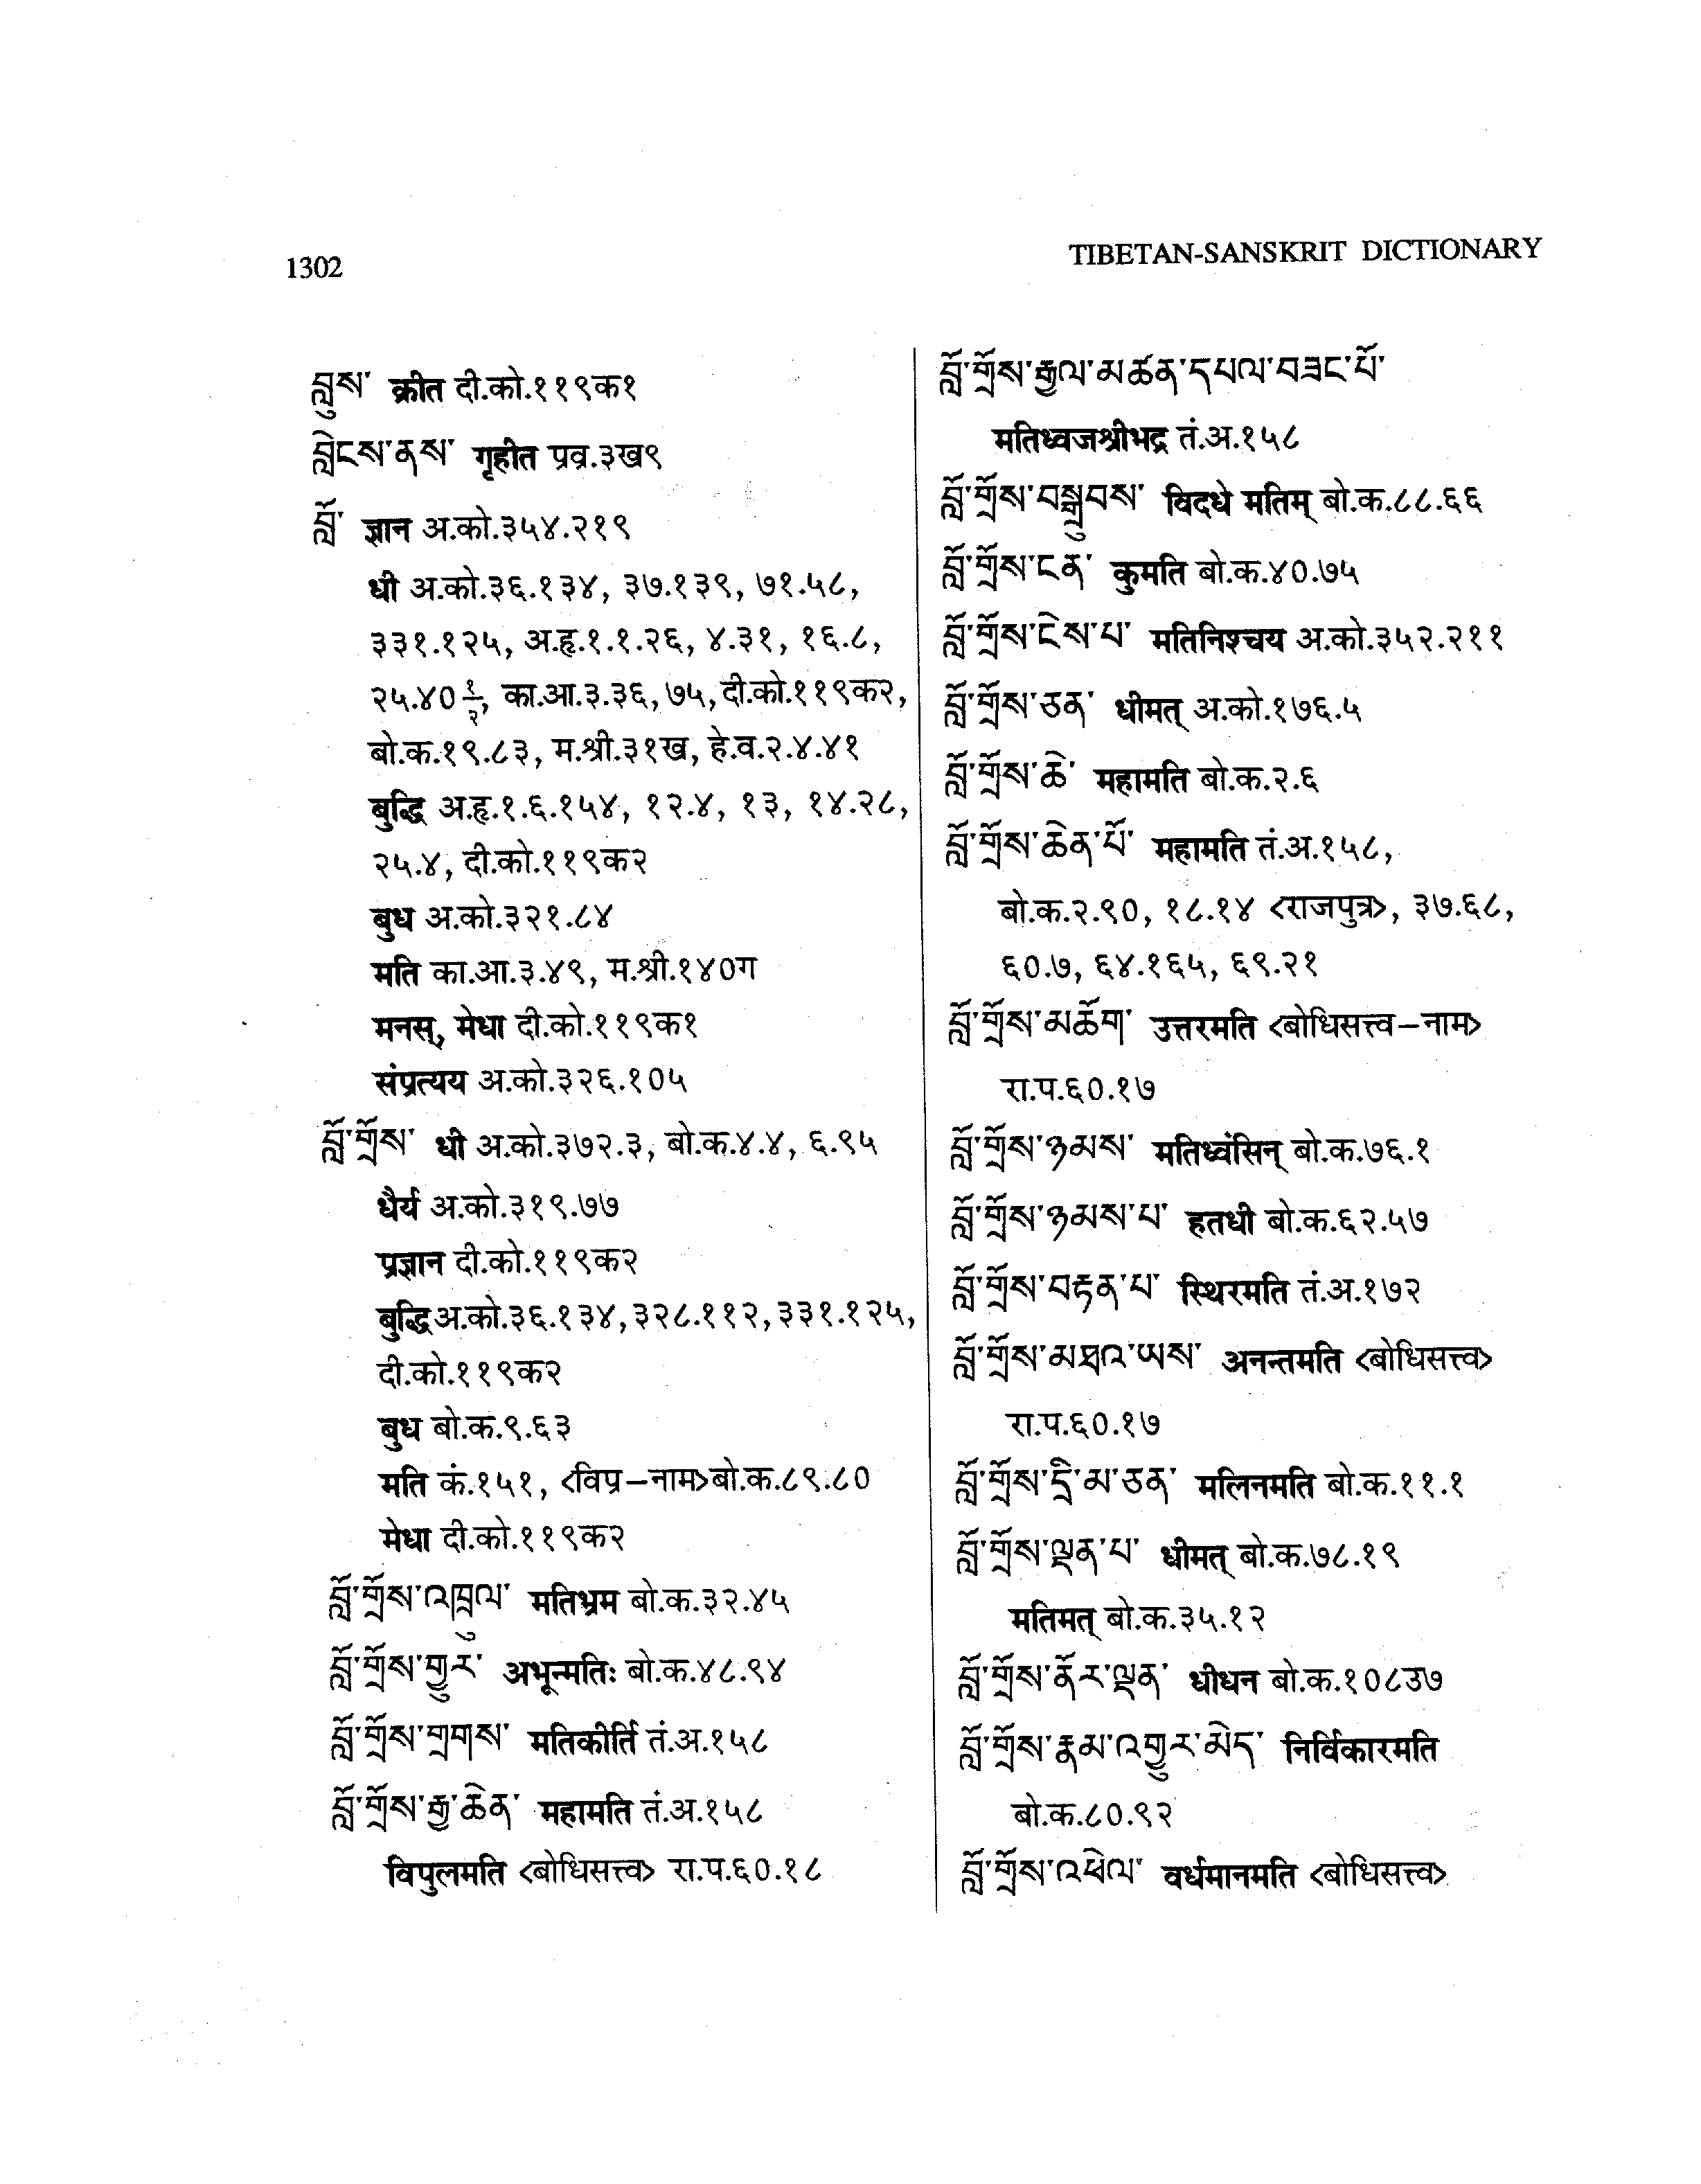 1302
TIBETAN-SANSKRIT DICTIONARY
བླུས་ क्रीत दी.को.११९क१
བླེངས་ནས་ गृहीत प्रव्र.३ख९
བློ་ ज्ञान अ.को.३५४.२१९
धी अ.को.३६.१३४, ३७.१३९, ७१.५८,
३३१.१२५, अ.हृ.१.१.२६, ४.३१, १६.८,
२५.४० १/२, का.आ.३.३६, ७५, दी.को.११९क२,
बो.क.१९.८३, म.श्री.३१ख, हे.व.२.४.४१
बुद्धि अ.हृ.१.६.१५४, १२.४, १३, १४.२८,
२५.४, दी.को.११९क२
बुध अ.को.३२१.८४
मति का.आ.३.४९, म.श्री.१४०ग
मनस्, मेधा दी.को.११९क१
संप्रत्यय अ.को.३२६.१०५
བློ་གྲོས་ धी अ.को.३७२.३, बो.क.४.४, ६.९५
धैर्य अ.को.३१९.७७
प्रज्ञान दी.को.११९क२
बुद्धि अ.को.३६.१३४, ३२८.११२, ३३१.१२५,
दी.को.११९क२
बुध बो.क.९.६३
मति कं.१५१, <विप्र–नाम>बो.क.८९.८०
मेधा दी.को.११९क२
བློ་གྲོས་འཁྲུལ་ मतिभ्रम बो.क.३२.४५
བློ་གྲོས་གྱུར་ अभून्मतिः बो.क.४८.९४
བློ་གྲོས་གྲགས་ मतिकीर्ति तं.अ.१५८
བློ་གྲོས་རྒྱ་ཆེན་ महामति तं.अ.१५८
विपुलमति <बोधिसत्त्व> रा.प.६०.१८
བློ་གྲོས་རྒྱལ་མཚན་དཔལ་བཟང་པོ་
मतिध्वजश्रीभद्र तं.अ.१५८
བློ་གྲོས་བསྒྲུབས་ विदधे मतिम् बो.क.८८.६६
བློ་གྲོས་ངན་ कुमति बो.क.४०.७५
བློ་གྲོས་ངེས་པ་ मतिनिश्चय अ.को.३५२.२११
བློ་གྲོས་ཅན་ धीमत् अ.को.१७६.५
བློ་གྲོས་ཆེ་ महामति बो.क.२.६
བློ་གྲོས་ཆེན་པོ་ महामति तं.अ.१५८,
बो.क.२.९०, १८.१४ <राजपुत्र>, ३७.६८,
६०.७, ६४.१६५, ६९.२१
བློ་གྲོས་མཆོག་ उत्तरमति <बोधिसत्त्व–नाम>
रा.प.६०.१७
བློ་གྲོས་ཉམས་ मतिध्वंसिन् बो.क.७६.१
བློ་གྲོས་ཉམས་པ་ हतधी बो.क.६२.५७
བློ་གྲོས་བརྟན་པ་ स्थिरमति तं.अ.१७२
བློ་གྲོས་མཐའ་ཡས་ अनन्तमति <बोधिसत्त्व>
रा.प.६०.१७
བློ་གྲོས་དྲི་མ་ཅན་ मलिनमति बो.क.११.१
བློ་གྲོས་ལྡན་པ་ धीमत् बो.क.७८.१९
मतिमत् बो.क.३५.१२
བློ་གྲོས་ནོར་ལྡན་ धीधन बो.क.१०८उ७
བློ་གྲོས་རྣམ་འགྱུར་མེད་ निर्विकारमति
बो.क.८०.९२
བློ་གྲོས་འཕེལ་ वर्धमानमति <बोधिसत्त्व>